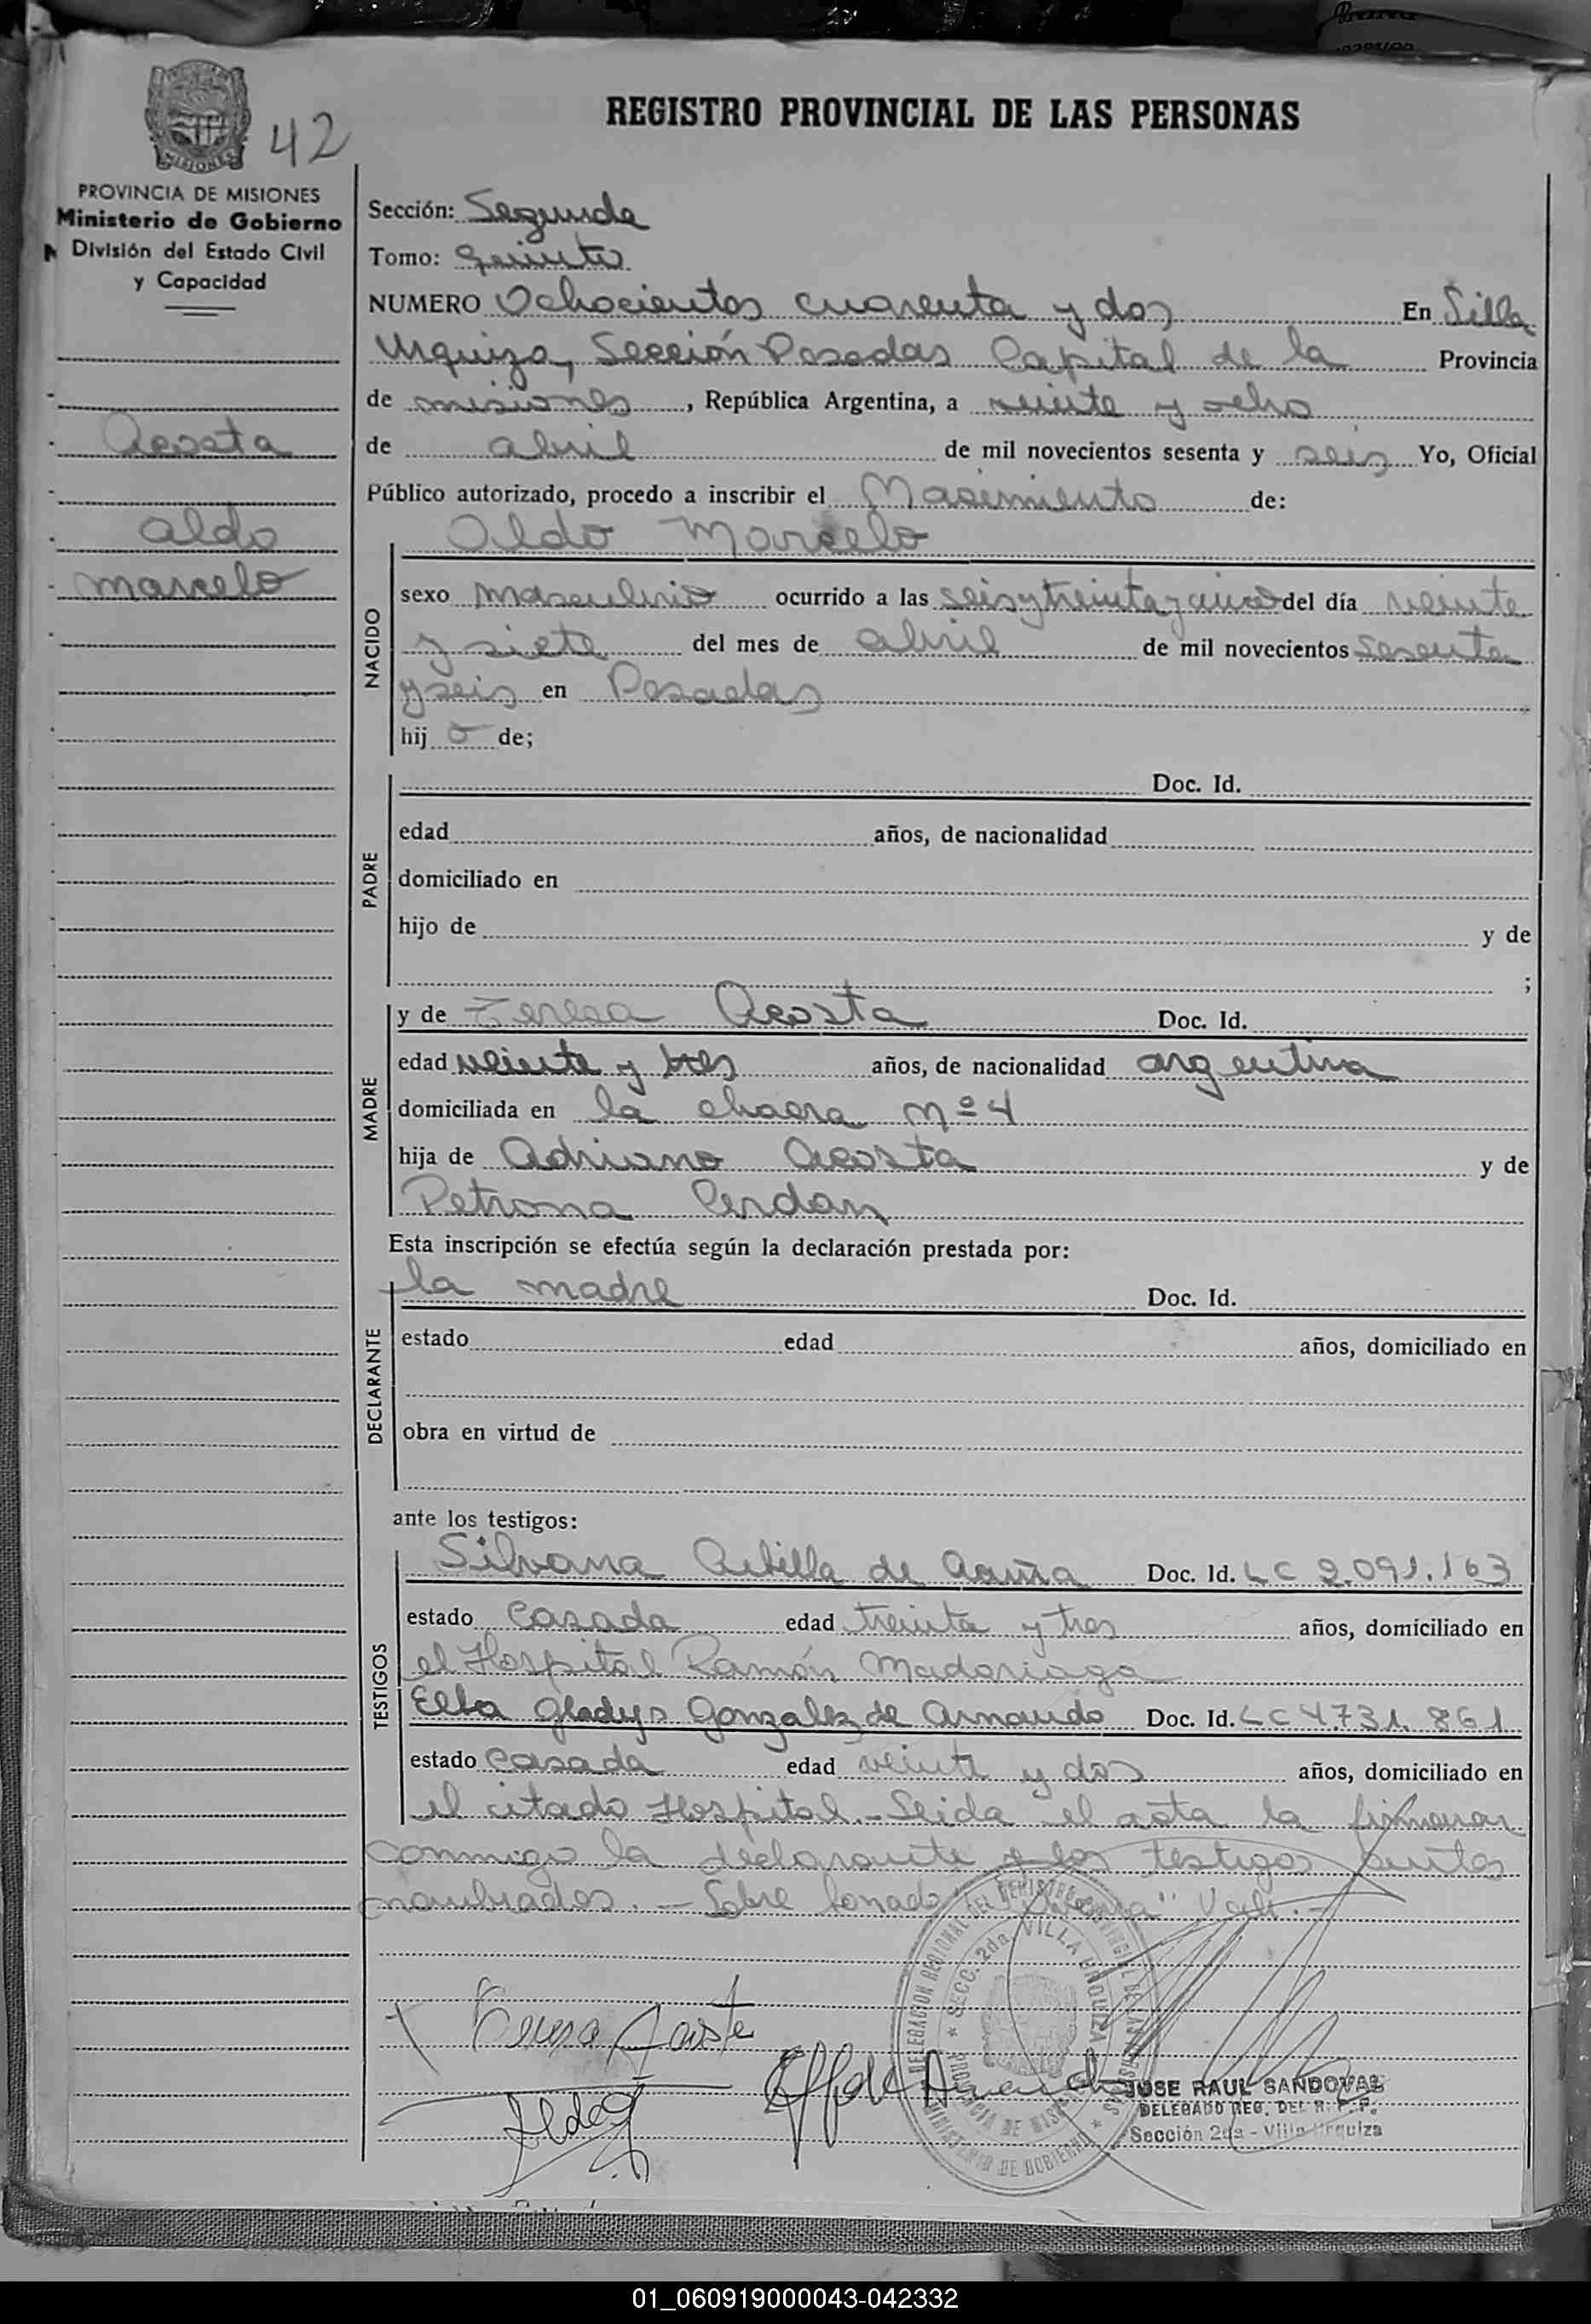 42
REGISTRO PROVINCIAL DE LAS PERSONAS
MISIONES
PROVINCIA DE MISIONES
Ministerio de Gobierno
División del Estado Civil
y Capacidad
Acosta
aldo
marcelo
Sección: Segunda
Tomo: Quinto
NUMERO Ochocientos cuarenta y dos En Villa
Urquiza, Sección Posadas Capital de la Provincia
de misiones, República Argentina, a veinte y ocho
de abril de mil novecientos sesenta y seis Yo, Oficial
Público autorizado, procedo a inscribir el Nacimiento de:
NACIDO
Aldo Marcelo
sexo masculino ocurrido a las seis y treinta y cinco del día veinte
y siete del mes de abril de mil novecientos sesenta
y seis en Posadas
hijo de;
PADRE
Doc. Id.
edad años, de nacionalidad
domiciliado en
hijo de y de
;
MADRE
y de Teresa Acosta Doc. Id.
edad veinte y tres años, de nacionalidad argentina
domiciliada en la chacra nº 4
hija de Adriano Acosta y de
Petrona Cerdan
Esta inscripción se efectúa según la declaración prestada por:
DECLARANTE
la madre Doc. Id.
estado edad años, domiciliado en
obra en virtud de
ante los testigos:
TESTIGOS
Silvana de Acuña Doc. Id. LC 9.091.163
estado Casada edad treinta y tres años, domiciliado en
el Hospital Ramón Madariaga
Elba Gladys Gonzalez de Armando Doc. Id. LC 4.731.861
estado Casada edad veinte y dos años, domiciliado en
el citado Hospital.- Leida el acta la firmaron
conmigo la declarante y los testigos
nombrados.- Sobre Vale.-
DELEGACION REGIONAL DEL REGISTRO PROVINCIAL DE LAS PERSONAS
SECC. 2da. VILLA URQUIZA
PROVINCIA DE MISIONES
MINISTERIO DE GOBIERNO
JOSE RAUL SANDOVAL
DELEGADO REG. DEL R. P. P.
Sección 2da - Villa Urquiza
01_060919000043-042332